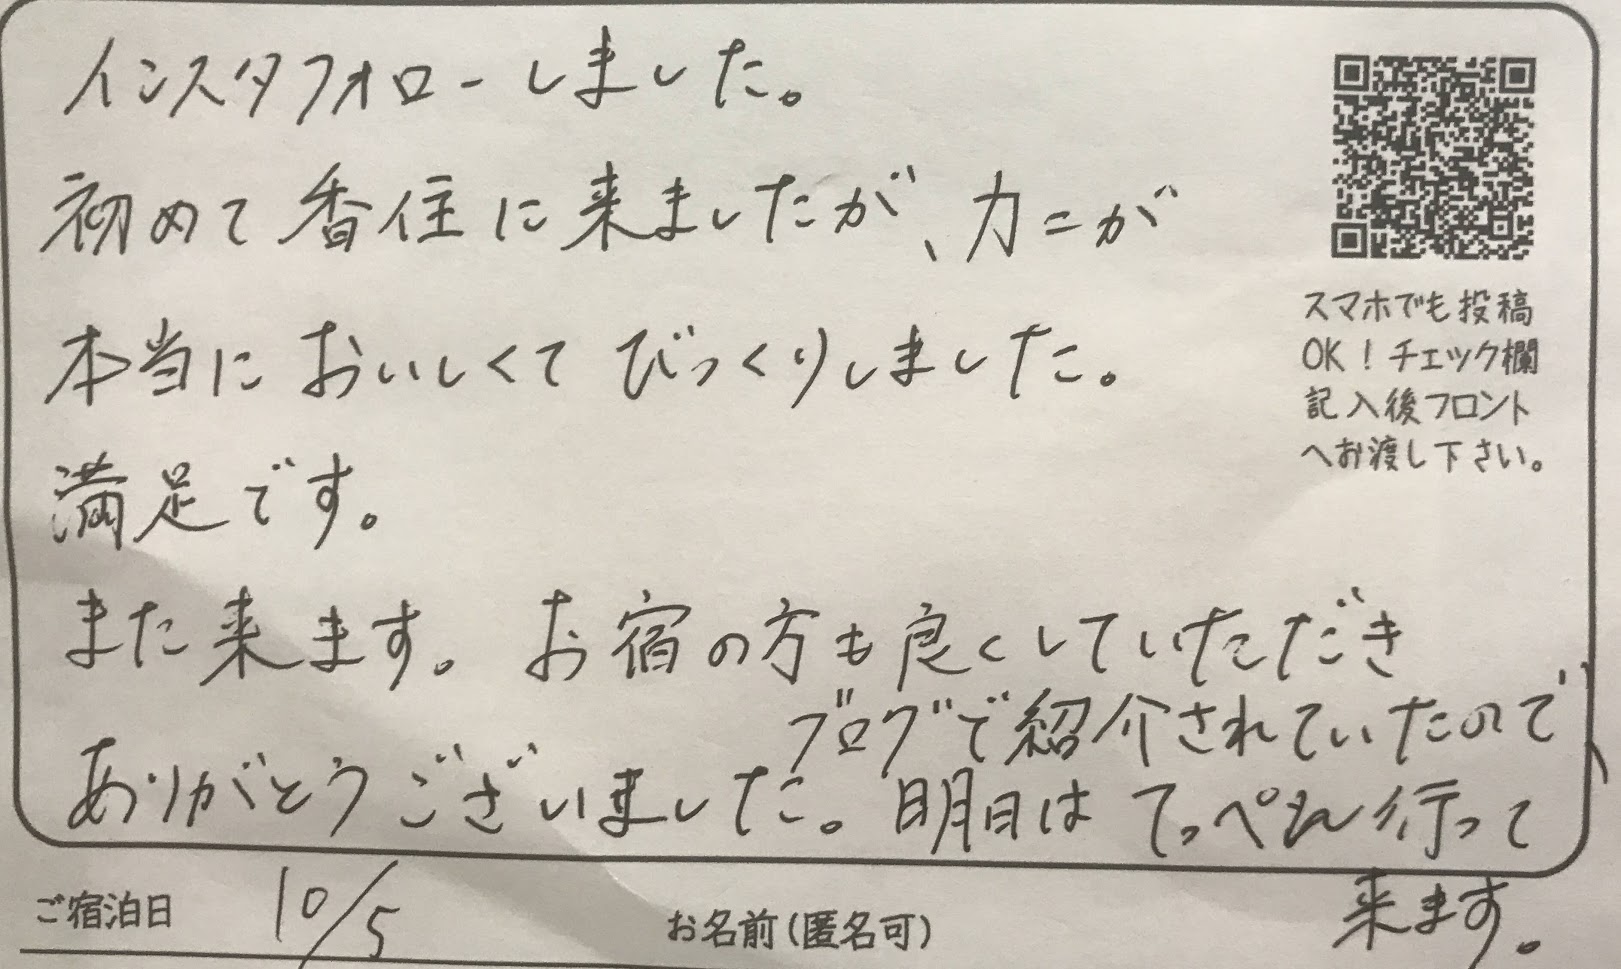 インスタフォローしました。
初めて香住に来ましたが、カニが
本当においしくてびっくりしました。
満足です。
また来ます。お宿の方も良くしていただき
ありがとうございました。明日は
ブログで紹介されていたので
てっぺん行って
来ます。
スマホでも投稿
OK！チェック欄
記入後フロント
へお渡し下さい。
ご宿泊日 10/5
お名前(匿名可)